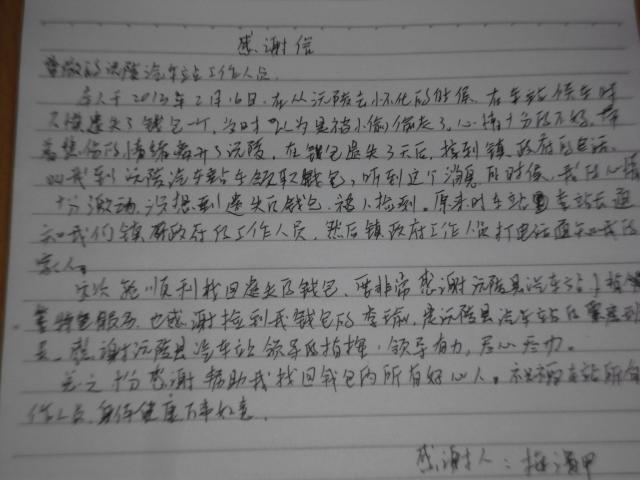 感谢信
尊敬的沅陵汽车站工作人员
本人于2013年2月16日,在从沅陵去怀化的时候,在车站候车时
不慎遗失了钱包一个,当时以为是被小偷偷走了,心情十分的不好,带
着悲伤的情绪离开了沅陵,在钱包遗失3天后,接到镇政府的电话
叫我到沅陵汽车站去领取钱包,听到这个消息的时候,我的心情
十分激动,没想到遗失的钱包,被人捡到。原来时车站
和我们镇政府的工作人员,然后镇政府工作人员打电话通知我的
家人。
这次能顺利找回遗失的钱包,要非常感谢沅陵县汽车站
特色服务,也感谢捡到我钱包的李瑜,是沅陵县汽车站的
员,感谢沅陵县汽车站领导的指挥,领导有力,尽心尽力。
总之十分感谢帮助我找回钱包的所有好心人。祝车站所有
作人员,身体健康万事如意。
感谢人: